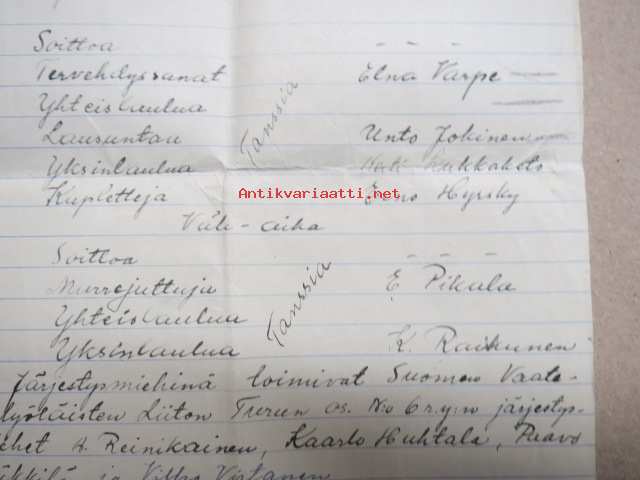 Soittoa - - -
Tervehdyssanat Elna Varpe
Yhteislaulua
Lausuntaa Unto Jokinen
Yksinlaulua
Kupletteja Eino Hyrsky
Tanssia
Antikvariaatti.net
Väli-aika
Soittoa - - -
Murrejuttuja E. Pikula
Yhteislaulua
Yksinlaulua K. Raikunen
Tanssia
Järjestysmiehinä toimivat Suomen Vaate-
työläisten Liiton Turun os. No 6 r.y:n järjestys-
H. Reinikainen, Kaarlo Huhtala, Paavo
ja Vilho Virtanen